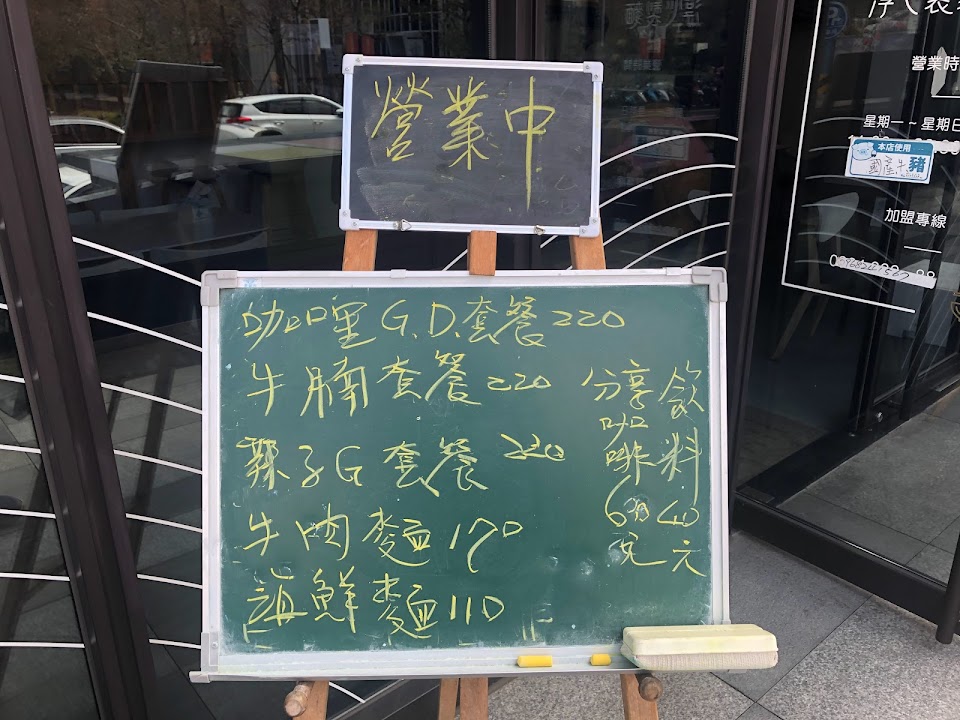 營業中
咖哩G.D.套餐220
牛腩套餐220
辣子G套餐220
牛肉麵170
海鮮麵110
飲料40元
分享咖啡60元
營業時
星期一~星期日
本店使用
國產牛豬
加盟專線